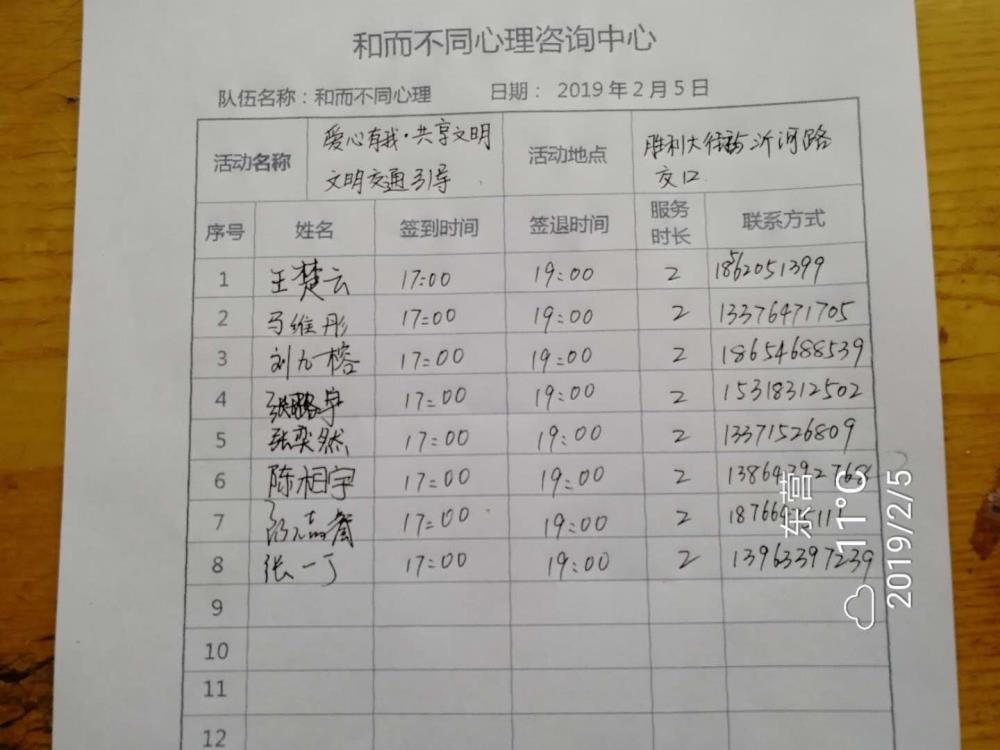 和而不同心理咨询中心
队伍名称：和而不同心理 日期： 2019 年 2 月 5 日
活动名称 爱心有我·共享文明 文明交通引导 活动地点 胜利大街与沂河路 交口
序号 姓名 签到时间 签退时间 服务时长 联系方式
1 王楚云 17:00 19:00 2 18562051399
2 马维彤 17:00 19:00 2 13376471705
3 刘九榕 17:00 19:00 2 18654688539
4 17:00 19:00 2 15318312502
5 张奕然 17:00 19:00 2 13371526809
6 陈相宇 17:00 19:00 2
7 17:00 19:00 2
8 张一丁 17:00 19:00 2 13963397239
9
10
11
12
东营
11°C
2019/2/5